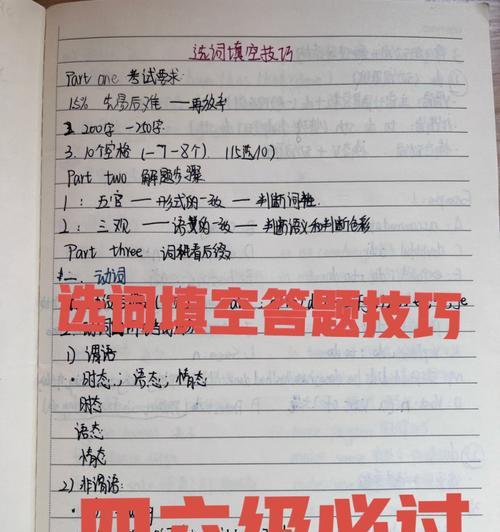 选词填空技巧
Part one 考试要求
15% 先易后难 ——再放弃
2. 200字 —250字
3. 10个空格 (—7-8个) (15选10)
Part two 解题步骤
1: 五官 —— 形式的一致 —— 判断词性
2: 三观 —— 语篇的一致 —— 判断语义和判断色彩
Part three 词根看后缀
一、动词
选词填空答题技巧
1) 谓语
· 时态; 语态; 情态
时态
语态
情态
2) 非谓语:
四六级必过